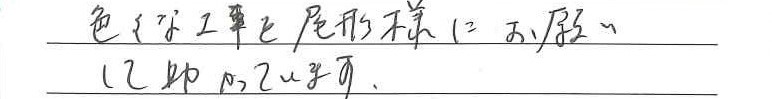 色々な工事を尾形様にお願い
して助かっています.